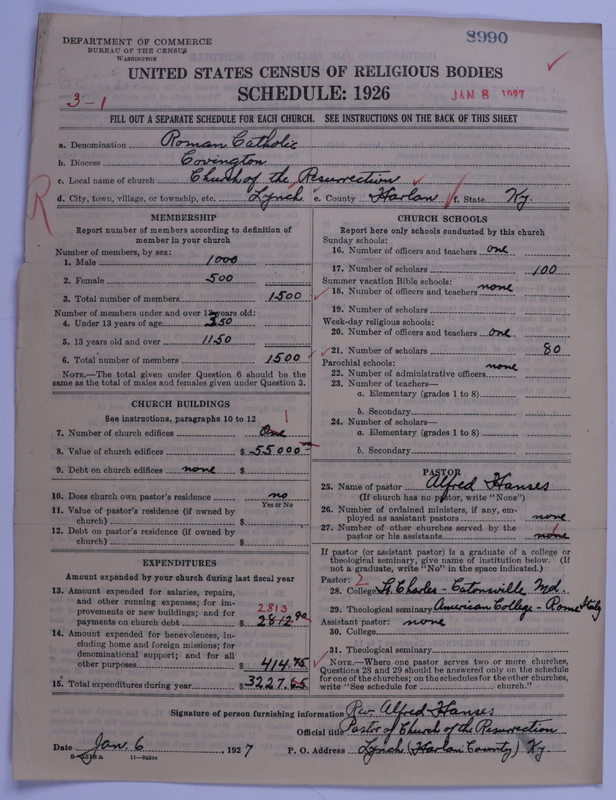 8990
DEPARTMENT OF COMMERCE
BUREAU OF THE CENSUS
WASHINGTON
UNITED STATES CENSUS OF RELIGIOUS BODIES
SCHEDULE: 1926
3-1
JAN 8 1927
FILL OUT A SEPARATE SCHEDULE FOR EACH CHURCH. SEE INSTRUCTIONS ON THE BACK OF THIS SHEET
a. Denomination Roman Catholic
b. Diocese Covington
c. Local name of church Church of the Resurrection
d. City, town, village, or township, etc. Lynch e. County Harlan f. State Ky.
R
MEMBERSHIP
Report number of members according to definition of
member in your church
Number of members, by sex:
1. Male 1000
2. Female 500
3. Total number of members 1500
Number of members under and over 13 years old:
4. Under 13 years of age 350
5. 13 years old and over 1150
6. Total number of members 1500
NOTE.—The total given under Question 6 should be
same as the total of males and females given under Question 3.
CHURCH BUILDINGS
See instructions, paragraphs 10 to 12
1
7. Number of church edifices One
8. Value of church edifices $ 55000
9. Debt on church edifices none $
10. Does church own pastor's residence no
Yes or No
11. Value of pastor's residence (if owned by
church) $
12. Debt on pastor's residence (if owned by
church) $
EXPENDITURES
Amount expended by your church during last fiscal year
13. Amount expended for salaries, repairs,
and other running expenses; for im-
provements or new buildings; and for 2813
payments on church debt $ 2812.90
14. Amount expended for benevolences, in-
cluding home and foreign missions; for
denominational support; and for all
other purposes $ 414.75
15. Total expenditures during year $ 3227.65
CHURCH SCHOOLS
Report here only schools conducted by this church
Sunday schools:
16. Number of officers and teachers one
17. Number of scholars 100
Summer vacation Bible schools:
18. Number of officers and teachers none
19. Number of scholars
Week-day religious schools:
20. Number of officers and teachers one
21. Number of scholars 80
Parochial schools:
22. Number of administrative officers none
23. Number of teachers—
a. Elementary (grades 1 to 8)
b. Secondary
24. Number of scholars—
a. Elementary (grades 1 to 8)
b. Secondary
PASTOR
25. Name of pastor Alfred Hanses
(If church has no pastor, write "None")
26. Number of ordained ministers, if any, em-
ployed as assistant pastors none
27. Number of other churches served by the
pastor or his assistants none
If pastor (or assistant pastor) is a graduate of a college or
theological seminary, give name of institution below. (If
not a graduate, write "No" in the space indicated.)
Pastor: 2
28. College St. Charles - Catonsville, Md.
29. Theological seminary American College - Rome Italy
Assistant pastor: none
30. College
31. Theological seminary
NOTE.—Where one pastor serves two or more churches,
Questions 28 and 29 should be answered only on the schedule
for one of the churches; on the schedules for the other churches,
write "See schedule for church."
Signature of person furnishing information Rev. Alfred Hanses
Official title Pastor of Church of the Resurrection
Date Jan. 6, 1927 P. O. Address Lynch (Harlan County) Ky.
8-5318a 11-9564a